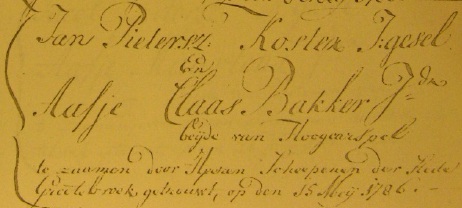 Jan Pietersz. Koster J:gesel
En
Aafje Claas Bakker J:dr
beyde van Hoogcarspel
te zaamen door Schepenen der Stede
Grootebroek getrouwt, op den 15 Meij 1786.